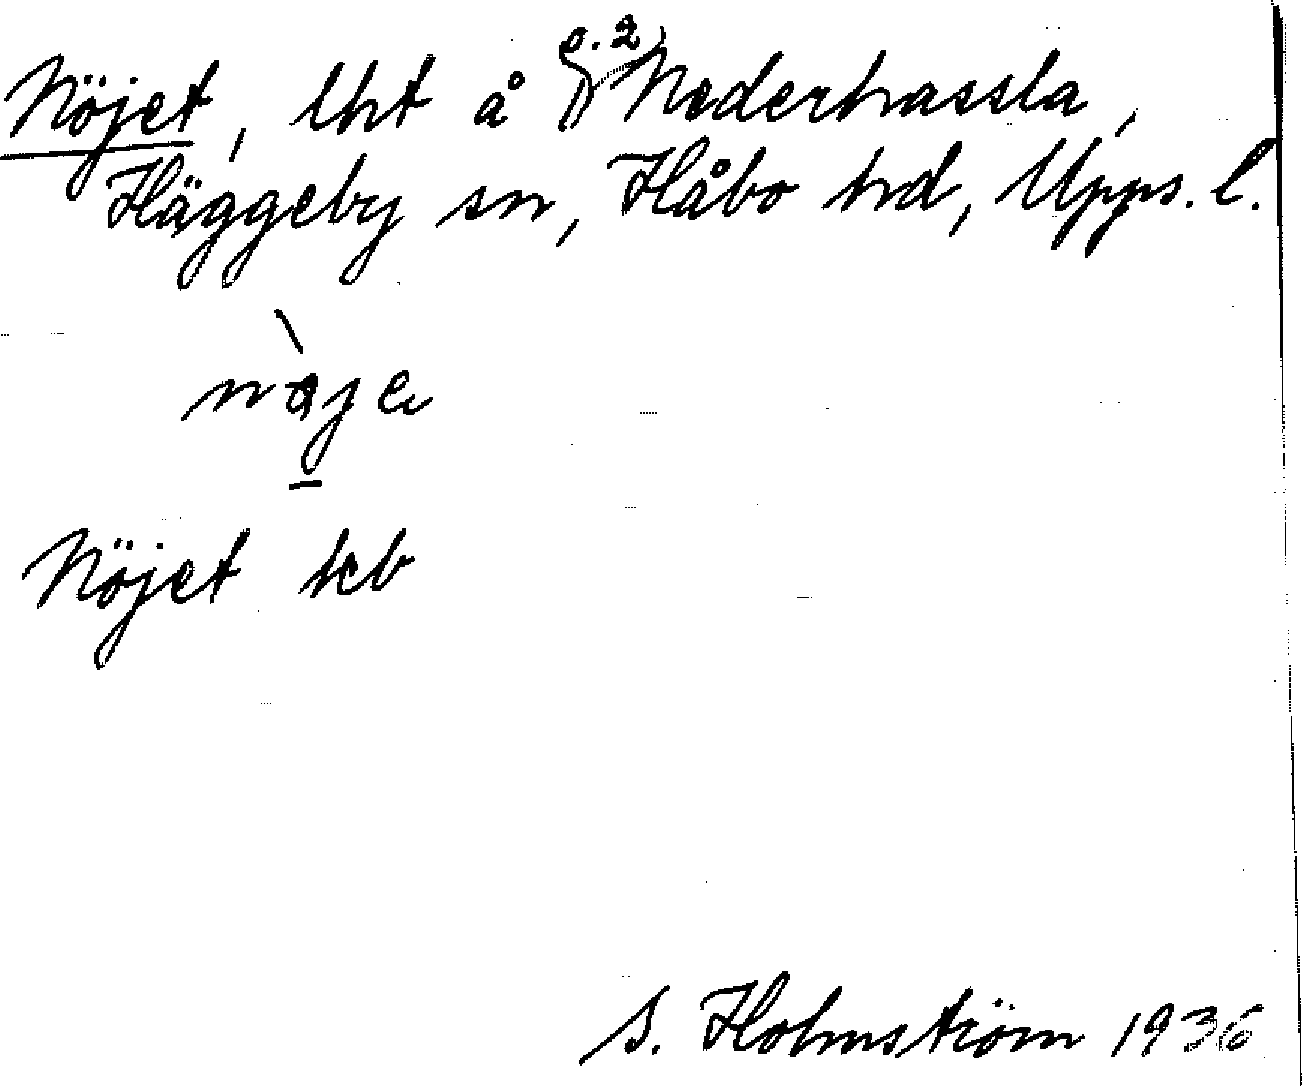 Nöjet, lht å o. 2 Nederhassla,
Häggeby sn, Håbo hd, Upps. l.
Nöjet kb
S. Holmström 1936